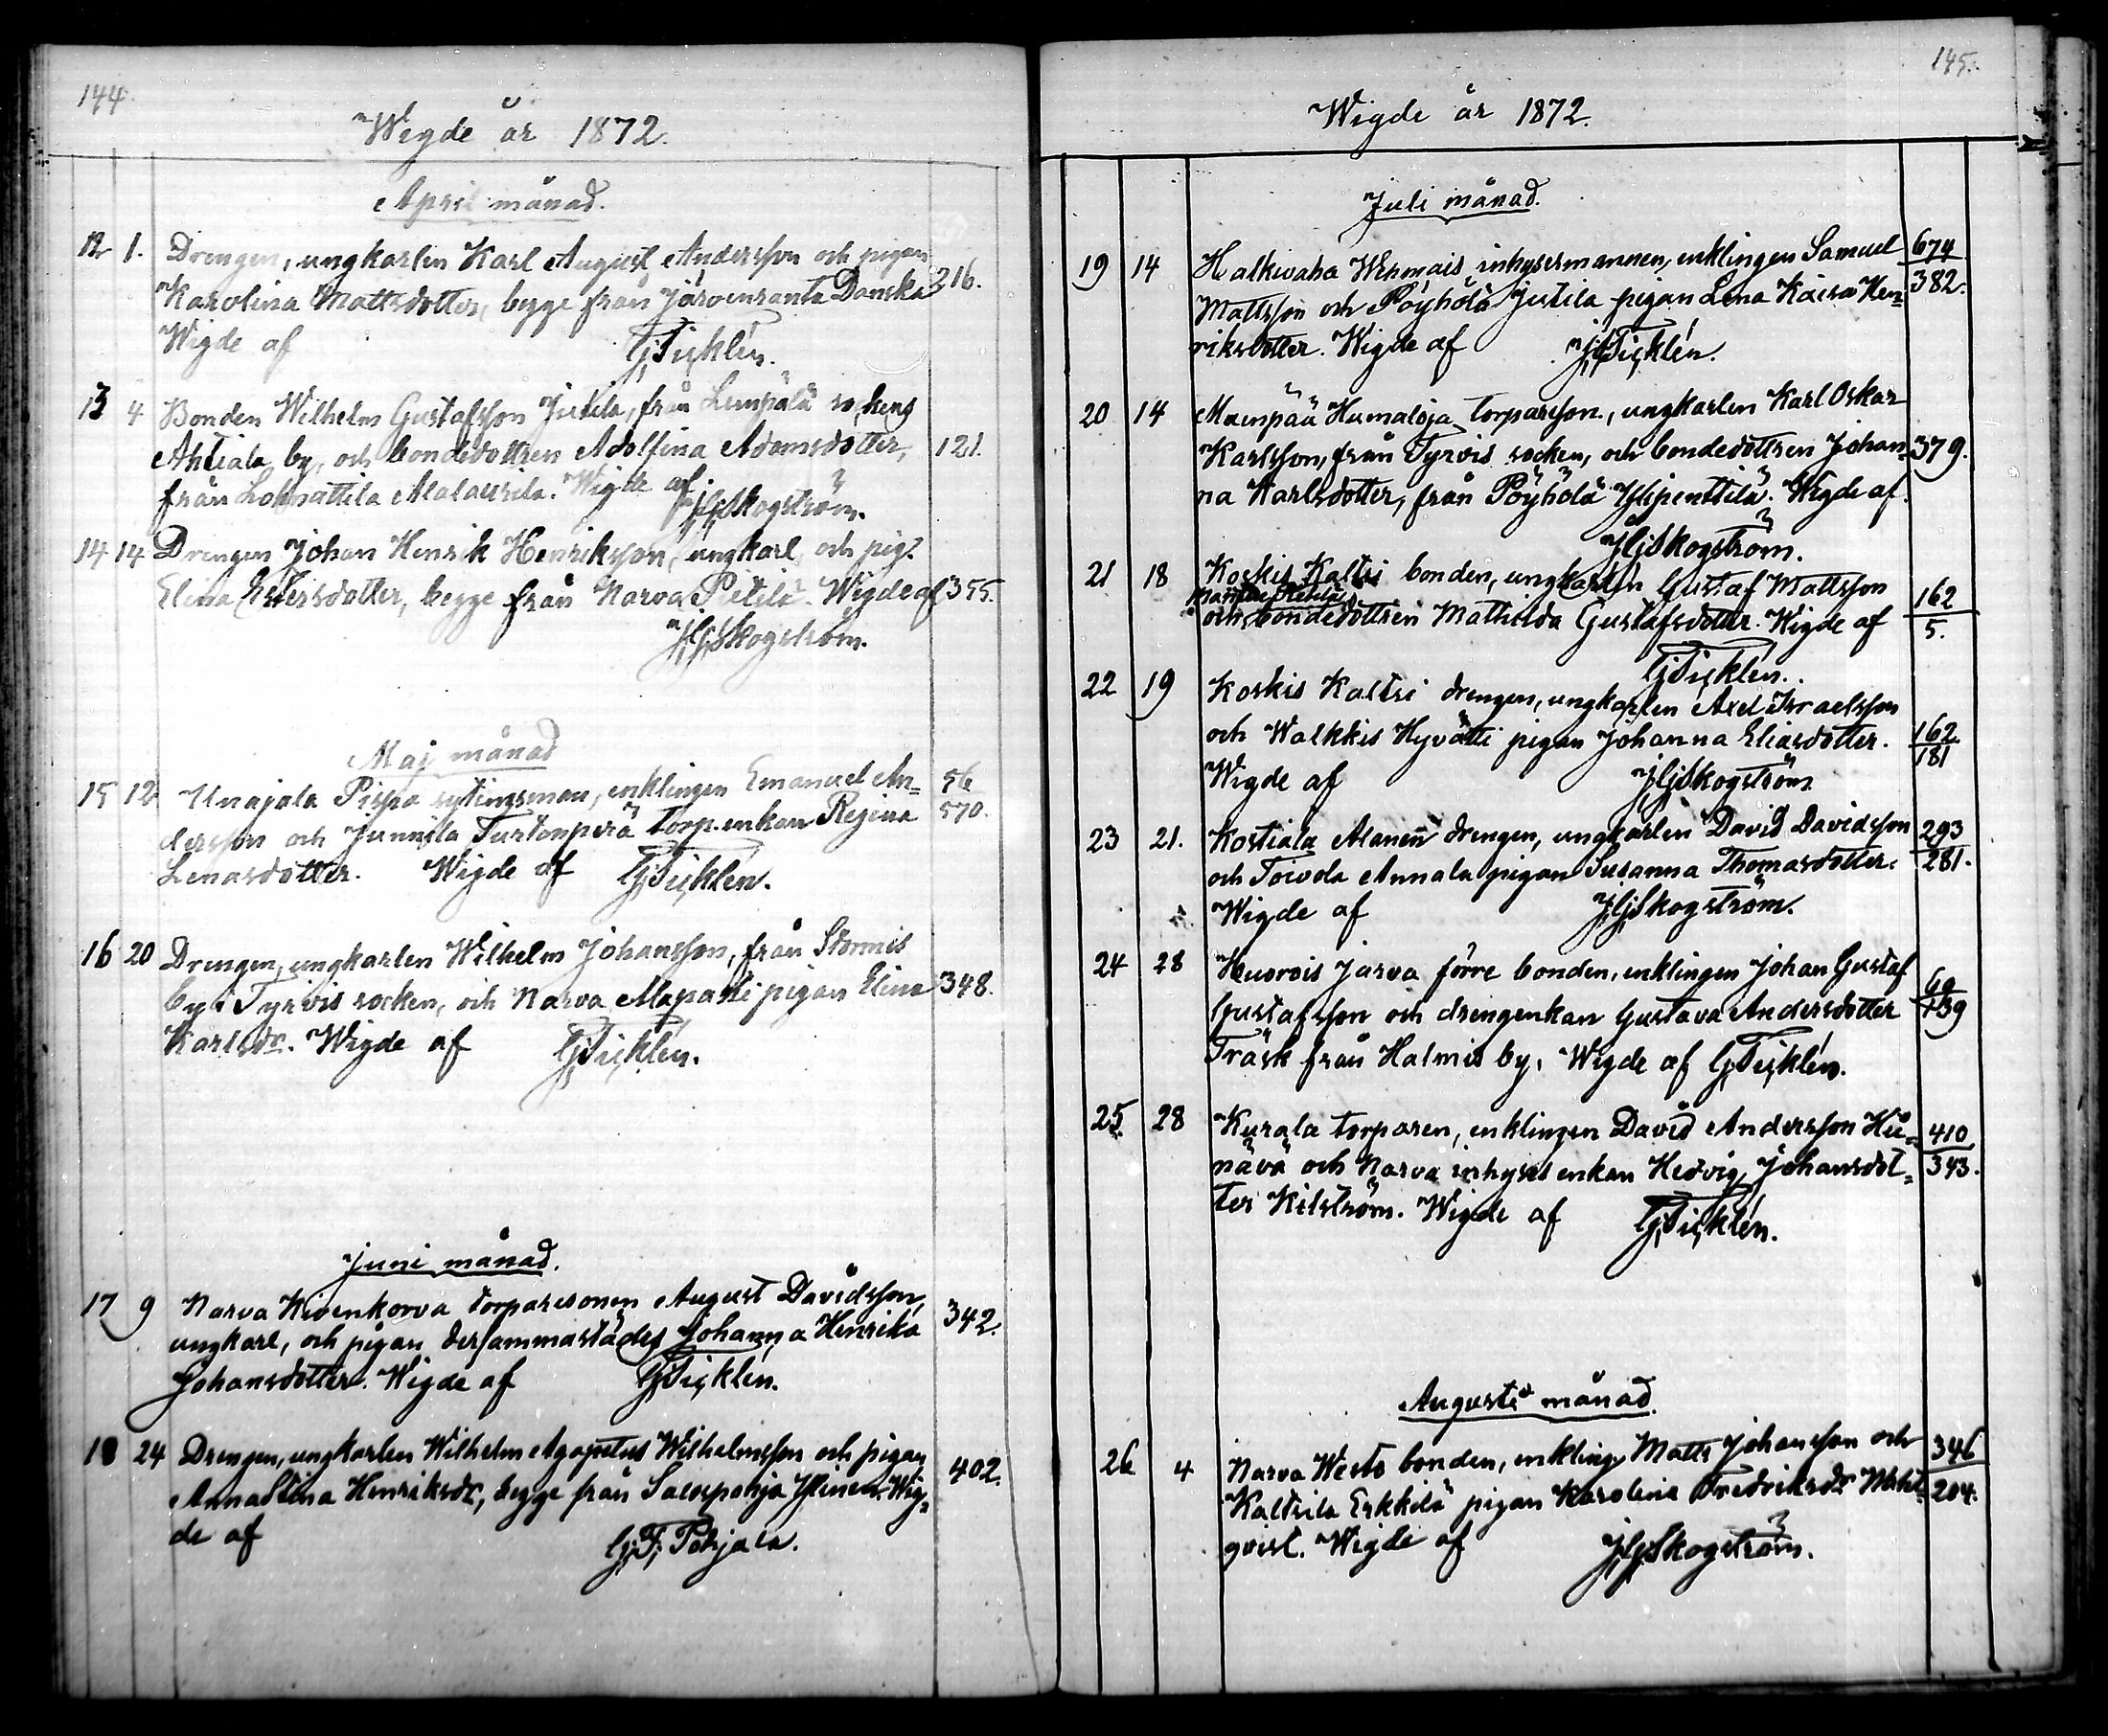 144.
Wigde år 1872.
April månad.
12 1. Drengen, ungkarlen Karl August Andersson och pigan 316.
Karolina Mattsdotter, begge från Järvenranta Danska
Wigde af GTicklén.
13 4 Bonden Wilhelm Gustafsson Jutila, från Lempälä sockens
Ahtiala by, och bondedottren Adolfina Adamsdotter, 121.
från Alalaurila. Wigde af JHSkogström.
14 14 Drengen Johan Henrik Henriksson, ungkarl, och pig.
Elina begge från Narva Pietilä. Wigde af 355.
JHSkogström.
Maj månad
15 12 Unajala Pispa sytinsman, enklingen Emanuel An= 56
dersson och Junnila torp.enkan Regina 570.
Lenasdotter. Wigde af GTicklén.
16 20 Drengen, ungkarlen Wilhelm Johansson, från Stormis
by i Tyrvis socken, och Narva pigan Elina 348.
Karlsdr. Wigde af GTicklén.
Juni månad.
17 9 Narva Kivenkorva torparesonen August Davidsson, 342.
ungkarl, och pigan dersammastädes Johanna Henrika
Johansdotter. Wigde af GTicklén.
18 24 Drengen, ungkarlen Wilhelm Agapetus Wilhelmsson och pigan 402.
Anna Stina Henriksdr, begge från Salospohja Ylinen. Wig=
de af G.F. Pohjala.
145.
Wigde år 1872.
Juli månad.
19 14 Halkivaha Wehmais inhysermannen, enklingen Samuel 674
Mattsson och Pöyhölä Jutila pigan Lena Kaisa Hen= 382.
riksdotter. Wigde af GTicklén.
20 14 Maenpää Humaloja torparson, ungkarlen Karl Oskar
Karlsson, från Tyrvis socken, och bondedottren Johan= 379.
na Karlsdotter, från Pöyhölä Ylipenttilä. Wigde af
JHSkogström.
21 18 Koskis Kaltsi bonden, ungkarlen Gustaf Mattsson
och bondedottren Mathilda Gustafsdotter. Wigde af 162
5.
GTicklén.
22 19 Koskis Kaltsi drengen, ungkarlen Axel Israelsson
och Walkkis Hyvätti pigan Johanna Eliasdotter. 162
181
Wigde af JHSkogström
23 21. Kostiala Alanen drengen, ungkarlen David Davidsson 293
och Toivola Annala pigan Susanna Thomasdotter. 281.
Wigde af JHSkogström.
24 28 Huorois Jarva förre bonden, enklingen Johan Gustaf
Gustafsson och drengenkan Gustava Andersdotter
Träsk från Halmis by. Wigde af GTicklén.
25. 28 Kurala torparen, enklingen David Andersson Hii= 410
nävä och Narva inhyses enkan Hedvig Johansdot= 343.
ter Kilström. Wigde af GTicklén.
Augusti månad.
26 4 Narva Westo bonden, enkling Matts Johansson och 346
Kaltsila Erkkilä pigan Karolina Fredriksdr Wahl= 204.
qvist. Wigde af JHSkogström.